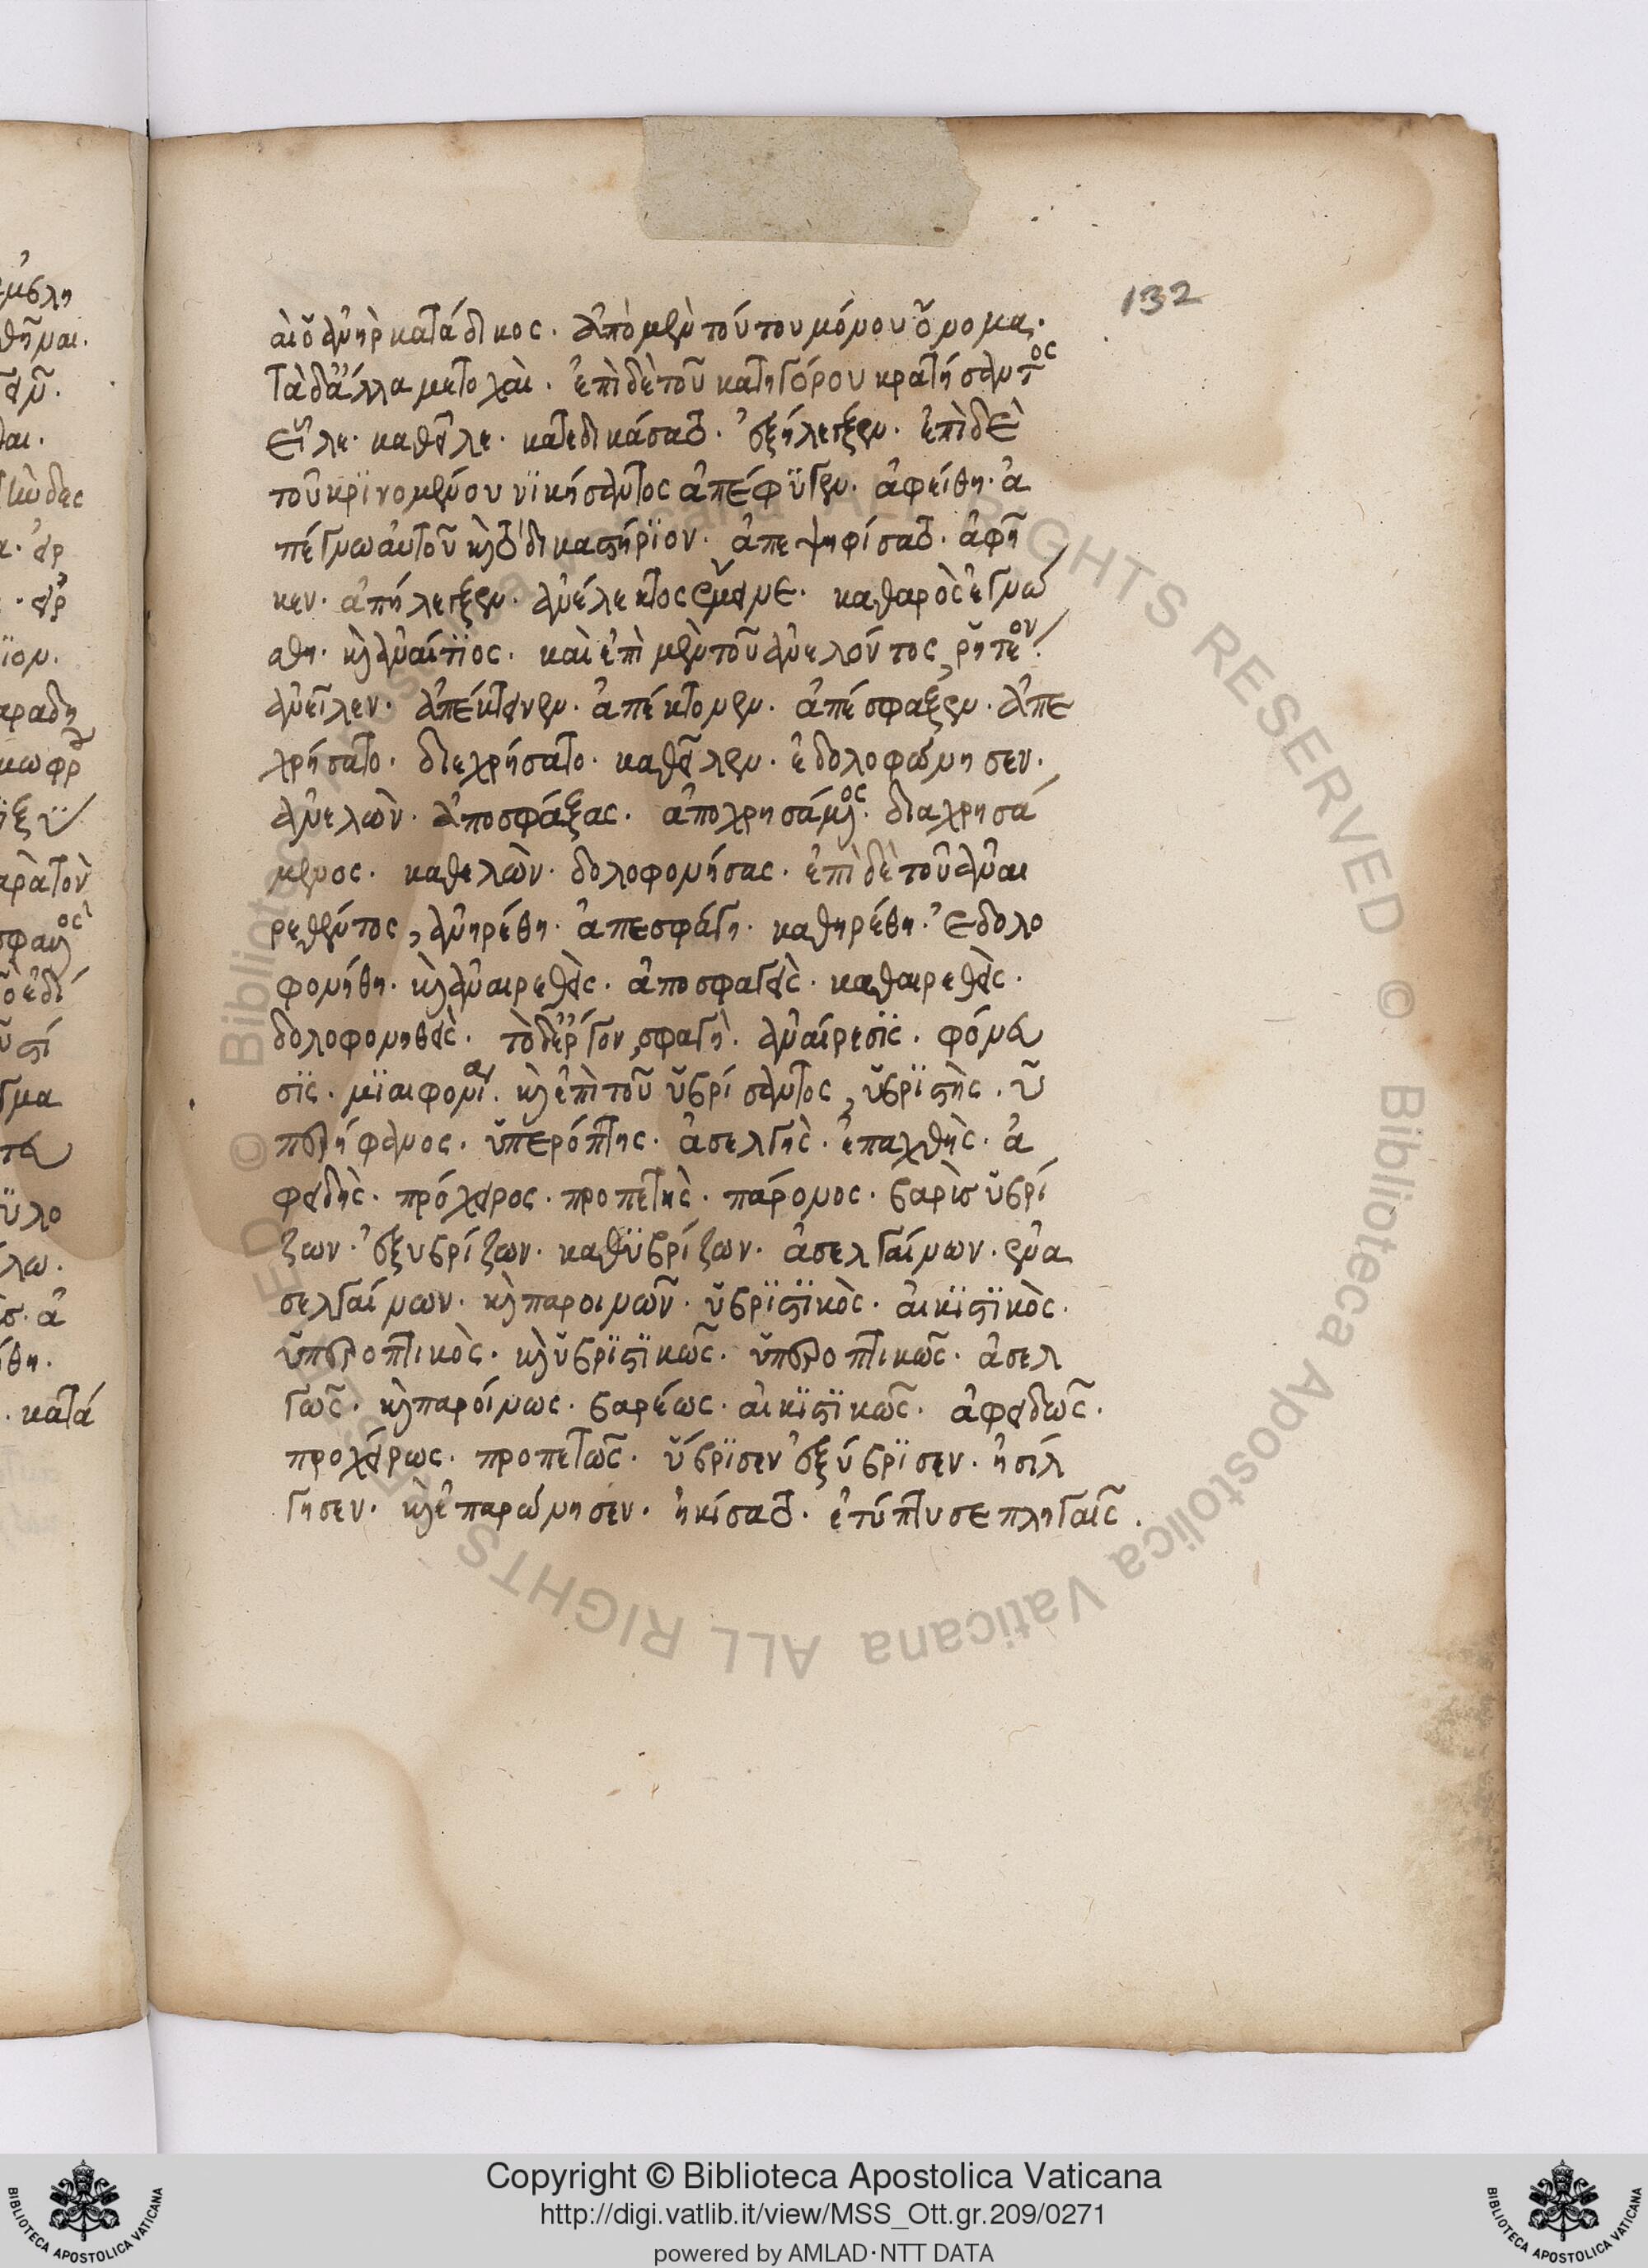 132
αἰ ὁ ἀνὴρ κατάδικος. ἀπὸ μὲν τούτου μόνου ὄνομα.
τὰ δ' ἄλλα μετοχαὶ. ἐπὶ δὲ τοῦ κατηγόρου κρατήσαντος
εἷλε. καθεῖλε. κατεδικάσατο. ἐξήλεγξεν. ἐπὶ δὲ
τοῦ κρϊνομένου νϊκήσαντος ἀπέφϋγεν. ἀφείθη. ἀ
πέγνω αὐτοῦ κὶ τὸ δικαστήρϊον. ἀπεψηφίσατο. ἀφῆ
κεν. ἀπήλεγξεν. ἀνέλεκτος ἔμεινε. καθαρὸς ἐγνώ
σθη. κὶ ἀναίτϊος. καὶ ἐπὶ μὲν τοῦ ἀνελόντος, ῥητέον.
ἀνεῖλεν. ἀπέκτεινεν. ἀπέκτονεν. ἀπέσφαξεν. ἀπε
χρήσατο. διεχρήσατο. καθεῖλεν. ἐδολοφώνησεν.
ἀνελὼν. ἀποσφάξας. ἀποχρησάμενος. διαχρησά
μενος. καθελὼν. δολοφονήσας. ἐπὶ δὲ τοῦ ἀναι
ρεθέντος, ἀνηρέθη. ἀπεσφάγη. καθηρέθη. ἐδολο
φονήθη. κὶ ἀναιρεθεὶς. ἀποσφαγεὶς. καθαιρεθεὶς.
δολοφονηθεὶς. τὸ δὲ ἔργον, σφαγὴ. ἀναίρεσϊς. φόνευ
σϊς. μϊαιφονία. κὶ ἐπὶ τοῦ ὑβρίσαντος, ὑβρϊστὴς. ὑ
περήφανος. ὑπερόπτης. ἀσελγὴς. ἐπαχθὴς. ἀ
φειδὴς. πρόχειρος. προπετὴς. πάροινος. βαρὺς ὑβρί
ζων. ἐξυβρίζων. καθϋβρίζων. ἀσελγαίνων. ἐνα
σελγαίνων. κὶ παροινῶν. ὑβρϊστϊκὸς. αἰκϊστϊκὸς.
ὑπεροπτικὸς. κὶ ὑβρϊστϊκῶς. ὑπεροπτικῶς. ἀσελ
γῶς. κὶ παροίνως. βαρέως. αἰκϊστϊκῶς. ἀφειδῶς.
προχείρως. προπετῶς. ὕβρϊσεν ἐξύβρϊσεν. ἠσέλ
γησεν. κὶ ἐπαρώνησεν. ἠκίσατο. ἐτύπτησε πληγαῖς.
Copyright © Biblioteca Apostolica Vaticana
http://digi.vatlib.it/view/MSS_Ott.gr.209/0271
powered by AMLAD·NTT DATA